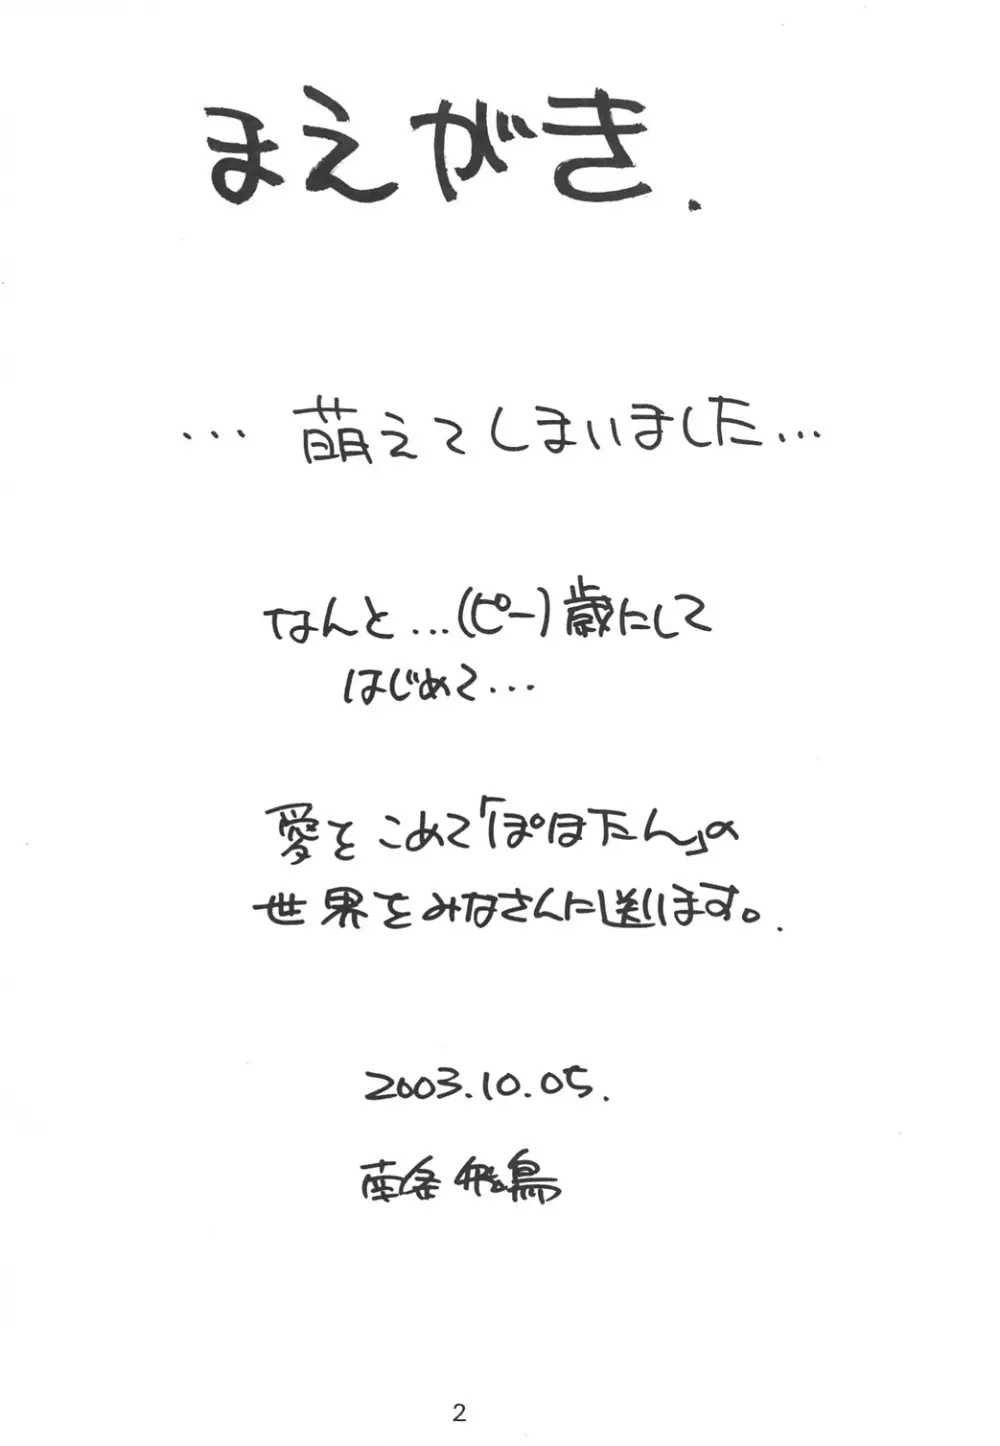 まえがき.
…萌えてしまいました…
なんと…(ピー)歳にして
はじめて…
愛をこめて「ぽぽたん」の
世界をみなさんに送ります。.
2003.10.05.
南条飛鳥
2